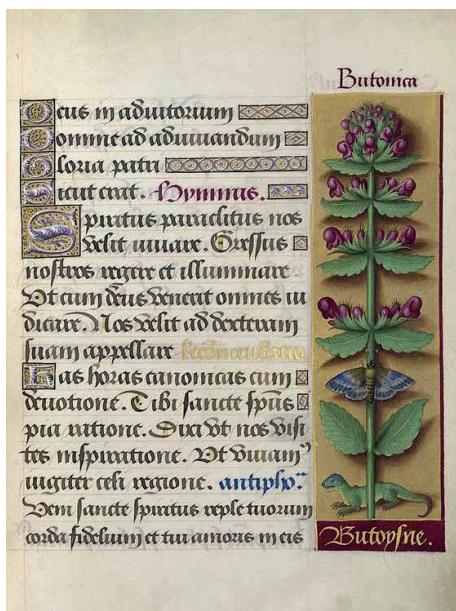 Butonica
Deus in adiutorium
Domine ad adiuuandum
Gloria patri
Sicut erat. Hymnus.
Spiritus paraclitus nos
velit iuuare. Gressus
nostros regere et illuminare
Vt cum deus venerit omnes iu
dicare. Nos velit ad dexteram
suam appellare Recōmandatio
Has horas canonicas cum
deuotione. Tibi sancte spūs
pia ratione. Dixi vt nos visi
tes inspiratione. Vt viuam9
iugiter celi regione. antipho.
Veni sancte spiritus reple tuorum
corda fidelium et tui amoris in eis
Butoysne.